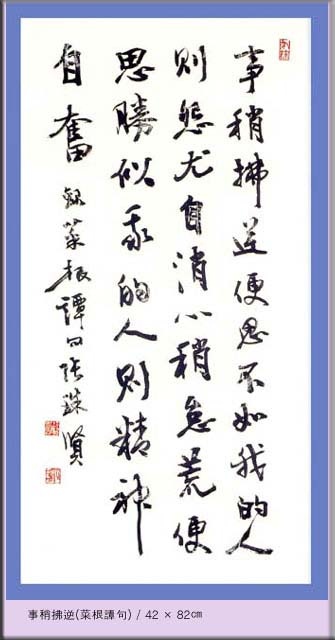 事稍拂逆便思不如我的人
則怨尤自消心稍怠荒便
思勝似我的人則精神
自奮 錄菜根譚句張珠賢
事稍拂逆(菜根譚句) / 42 × 82㎝